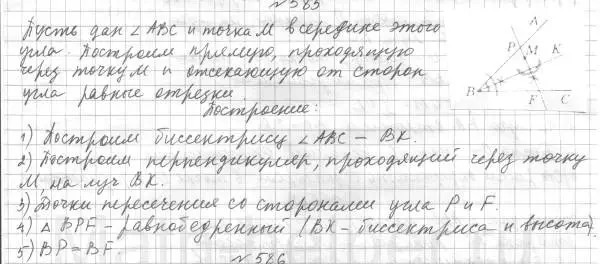 №585
Пусть дан ∠ABC и точка M в середине этого
угла. Построим прямую, проходящую
через точку M и отсекающую от сторон
угла равные отрезки
Построение:
1) Построим биссектрису ∠ABC – BK.
2) Построим перпендикуляр, проходящий через точку
M, на луч BK.
3) Точки пересечения со сторонами угла P и F.
4) △ BPF – равнобедренный (BK – биссектриса и высота).
5) BP = BF.
№586
A
P
M
K
B
F
C